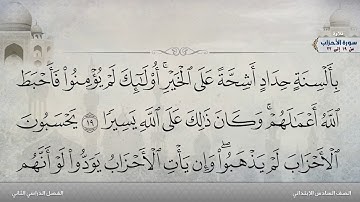 تلاوة
سورة الأحزاب
من ١٩ إلى ٢٢
بِأَلْسِنَةٍ حِدَادٍ أَشِحَّةً عَلَى الْخَيْرِ ۚ أُولَٰئِكَ لَمْ يُؤْمِنُوا فَأَحْبَطَ
اللَّهُ أَعْمَالَهُمْ ۚ وَكَانَ ذَٰلِكَ عَلَى اللَّهِ يَسِيرًا ﴿١٩﴾ يَحْسَبُونَ
الْأَحْزَابَ لَمْ يَذْهَبُوا ۖ وَإِن يَأْتِ الْأَحْزَابُ يَوَدُّوا لَوْ أَنَّهُم
الصف السادس الابتدائي
الفصل الدراسي الثاني